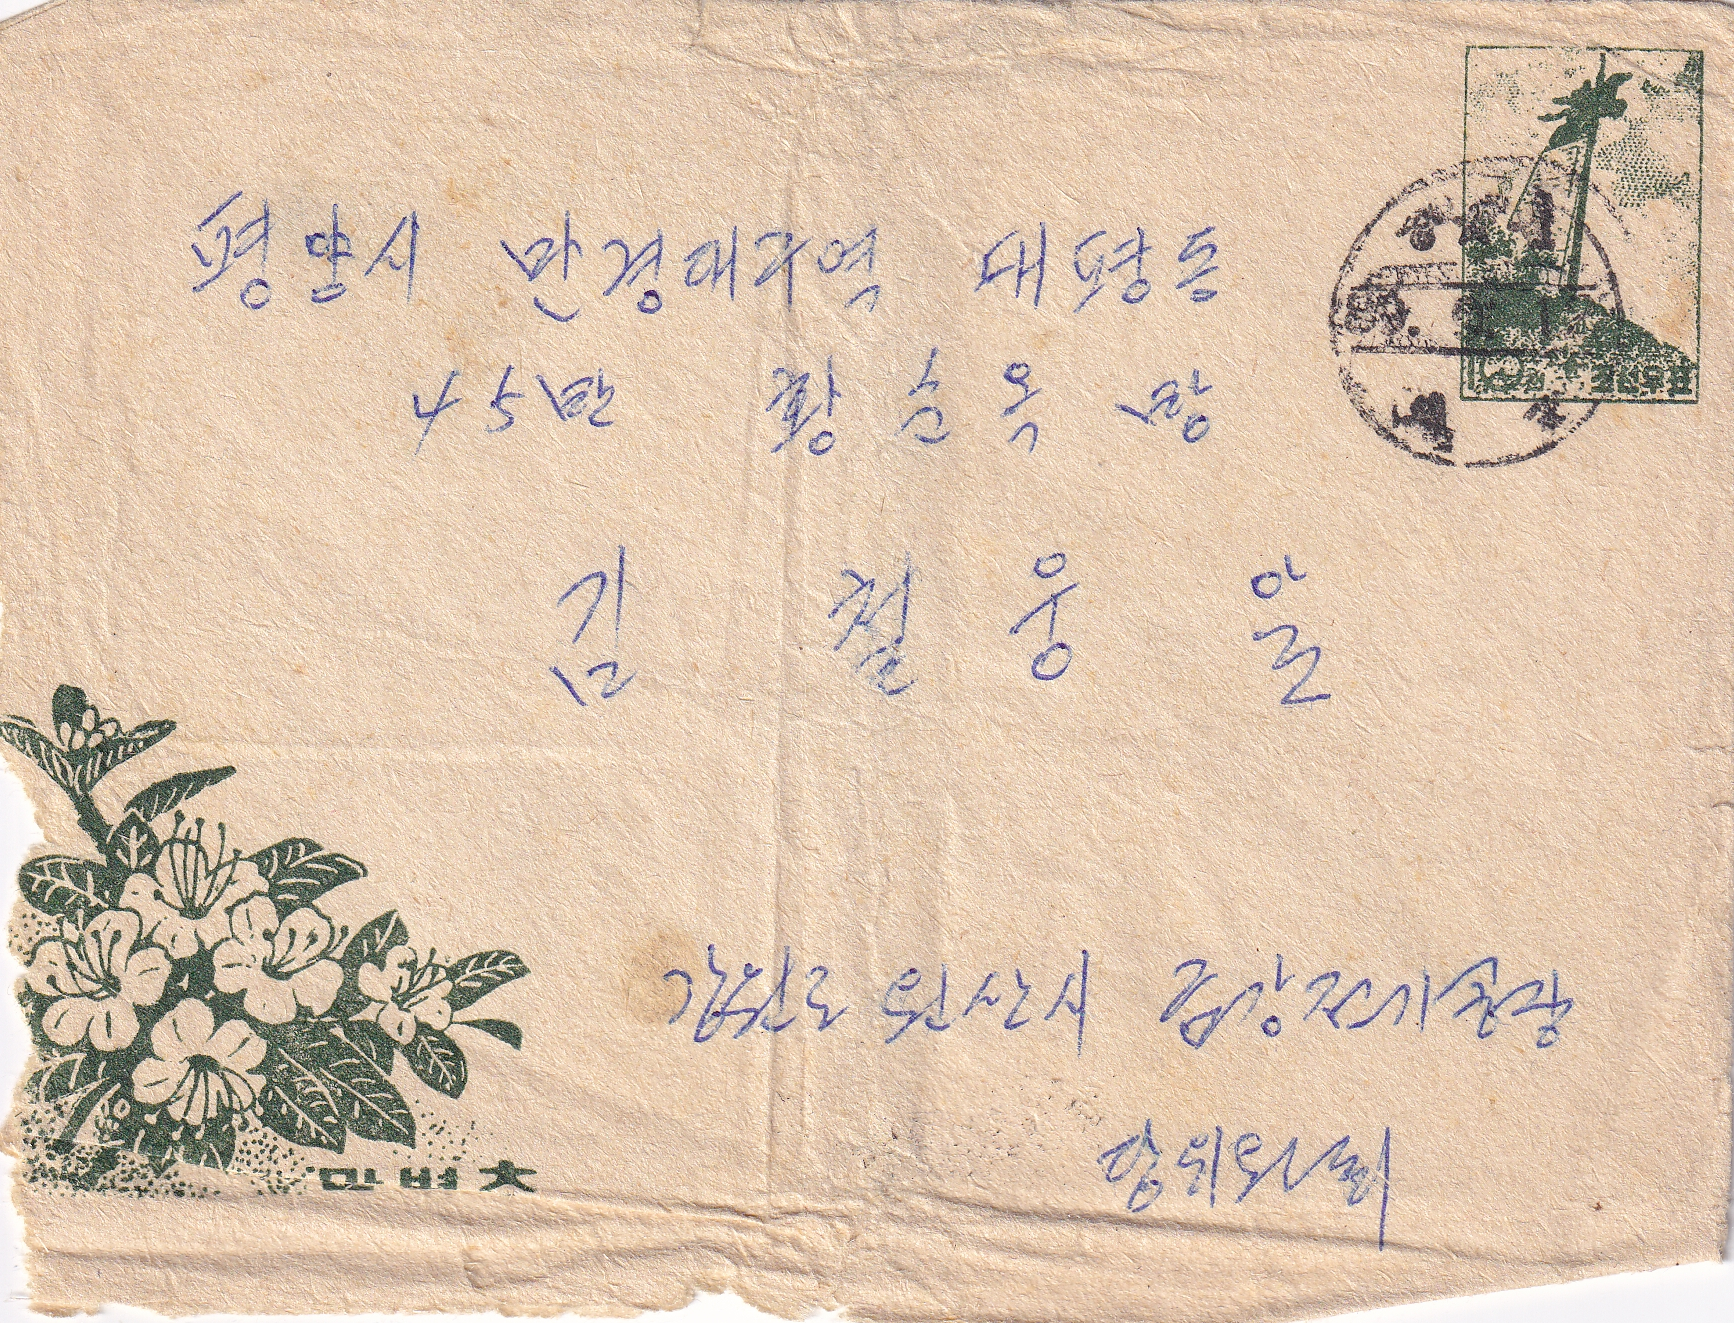 평양시 만경대구역 대평동
45반 황순옥 방
김철웅 앞
강원도 원산시 금강전기공장
당위원회
만병초